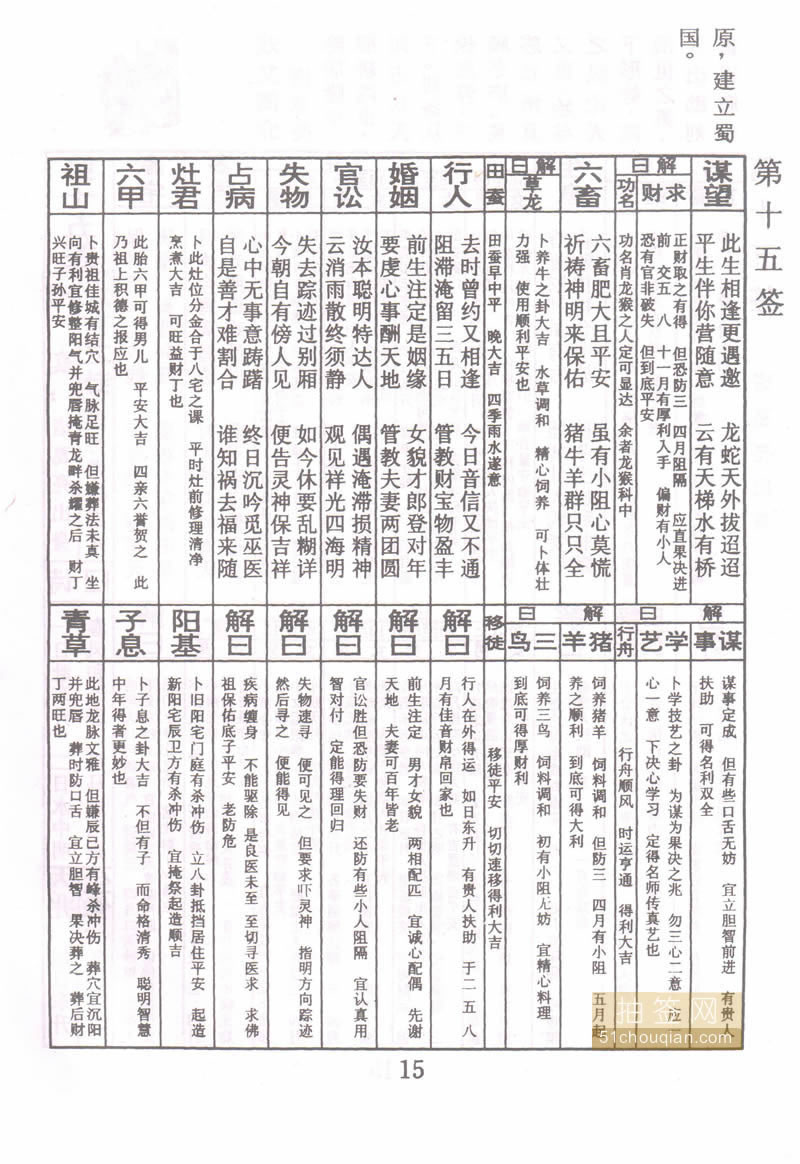 原，建立蜀
国。
第十五签
谋望
此生相逢更遇邀　龙蛇天外拔迢迢
平生伴你营随意　云有天梯水有桥
解曰
求财
正财取之有得　但恐防三　四月阻隔　应直果决进
前　交五　八　十一月有厚利入手　偏财有小人
恐有官非破失　但到底平安
功名
功名肖龙猴之人定可显达　余者龙猴科中
六畜
六畜肥大且平安　虽有小阻心莫慌
祈祷神明来保佑　猪牛羊群只只全
解曰
草龙
卜养牛之卦大吉　水草调和　精心饲养　可卜体壮
力强　使用顺利平安也
田蚕
田蚕早中平　晚大吉　四季雨水遂意
行人
去时曾约又相逢　今日音信又不通
阻滞淹留三五日　管教财宝物盈丰
婚姻
前生注定是姻缘　女貌才郎登对年
要虔心事酬天地　管教夫妻两团圆
官讼
汝本聪明特达人　偶遇淹滞损精神
云消雨散终须静　观见祥光四海明
失物
失去踪迹过别厢　如今休要乱糊详
今朝自有傍人见　便告灵神保吉祥
占病
心中无事意踌躇　终日沉吟觅巫医
自是善才难割合　谁知祸去福来随
灶君
卜此灶位分金合于八宅之课　平时灶前修理清净
烹煮大吉　可旺益财丁也
六甲
此胎六甲可得男儿　平安大吉　四亲六誉贺之　此
乃祖上积德之报应也
祖山
卜贵祖佳城有结穴　气脉足旺　但嫌葬法未真　坐
向有利宜修整阳气并兜唇掩青龙畔杀耀之后　财丁
兴旺子孙平安
解曰
谋事
谋事定成　但有些口舌无妨　宜立胆智前进　有贵人
扶助　可得名利双全
学艺
卜学技艺之卦　为谋为果决之兆　勿三心二意　应一
心一意　下决心学习　定得名师传真艺也
行舟
行舟顺风　时运亨通　得利大吉
解曰
猪羊
饲养猪羊　饲料调和　但防三　四月有小阻　五月起
养之顺利　到底可得大利
三鸟
饲养三鸟　饲料调和　初有小阻无妨　宜精心料理
到底可得厚财利
移徒
移徒平安　切切速移得利大吉
解曰
行人在外得运　如日东升　有贵人扶助　于二　五　八
月有佳音财帛回家也
解曰
前生注定　男才女貌　两相配匹　宜诚心配偶　先谢
天地　夫妻可百年皆老
解曰
官讼胜但恐防要失财　还防有些小人阻隔　宜认真用
智对付　定能得理回归
解曰
失物速寻　便可见之　但要求吓灵神　指明方向踪迹
然后寻之　便能得见
解曰
疾病缠身　不能驱除　是良医未至　至切寻医求　求佛
祖保佑底子平安　老防危
阳基
卜旧阳宅门庭有杀冲伤　立八卦抵挡居住平安　起造
新阳宅辰卫方有杀冲伤　宜掩祭起造顺吉
子息
卜子息之卦大吉　不但有子　而命格清秀　聪明智慧
中年得者更妙也
青草
此地龙脉文雅　但嫌辰己方有峰杀冲伤　葬穴宜沉阳
并兜唇　葬时防口舌　宜立胆智　果决葬之　葬后财
丁两旺也
15
抽签网
51chouqian.com